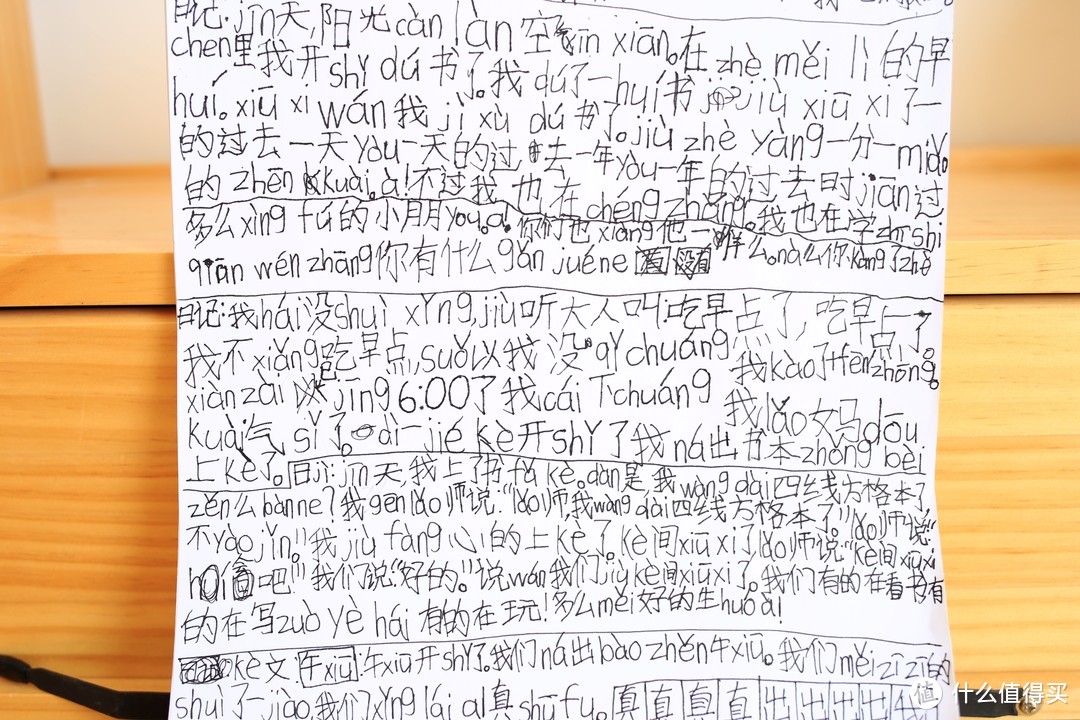 日记:jīn天,阳光càn làn空气xīn xiān。在zhè měi lì的早
chen里我开shǐ dú书了。我dú了一huí书jiù xiū xi了一
huí。xiū xi wán我jì xù dú书了。jiù zhè yàng一分一miǎo
的过去一天yòu一天的过去一年yòu一年的过去时jiān过
的zhēn kuài。à!不过我也在chéng zhǎng。我也在学zhī shi
多么xìng fú的小朋yǒu。a!你们也xiǎng他一样么。nà么你kàn了zhè
qiān wén zhāng你有什么gǎn jué ne
日记:我hái没shuì xǐng,jiù听大人叫:吃早点了,吃早点了。
我不xiǎng吃早点,suǒ以我没qǐ chuáng我kào了fēn zhōng。
xiàn zài以jīng 6:00了我cái下chuáng我lǎo妈dōu
kuài气sǐ了。dì一jié kè开shǐ了我ná出书本zhǔn bèi
上kè了。日记:jīn天,我上了书fǎ kè。dàn是我wàng dài四线方格本了
zěn么bàn ne?我gēn lǎo师说:“lǎo师,我wàng dài四线方格本了。”lǎo师说“
不yào jǐn。”我jiù fàng心的上kè了。kè间xiū xi了lǎo师说“kè间xiū xi
吧!”我们说“好的。”说wán我们jiù kè间xiū xi了。我们有的在看书有
的在写zuò yè hái有的在玩!多么měi好的生huó a!
kè文 午xiū:午xiū开shǐ了。我们ná出bào zhěn午xiū。我们měi zī zī的
shuì了一jiào,我们xǐng lái a!真shū fu。真真真真出出出出出
值 什么值得买